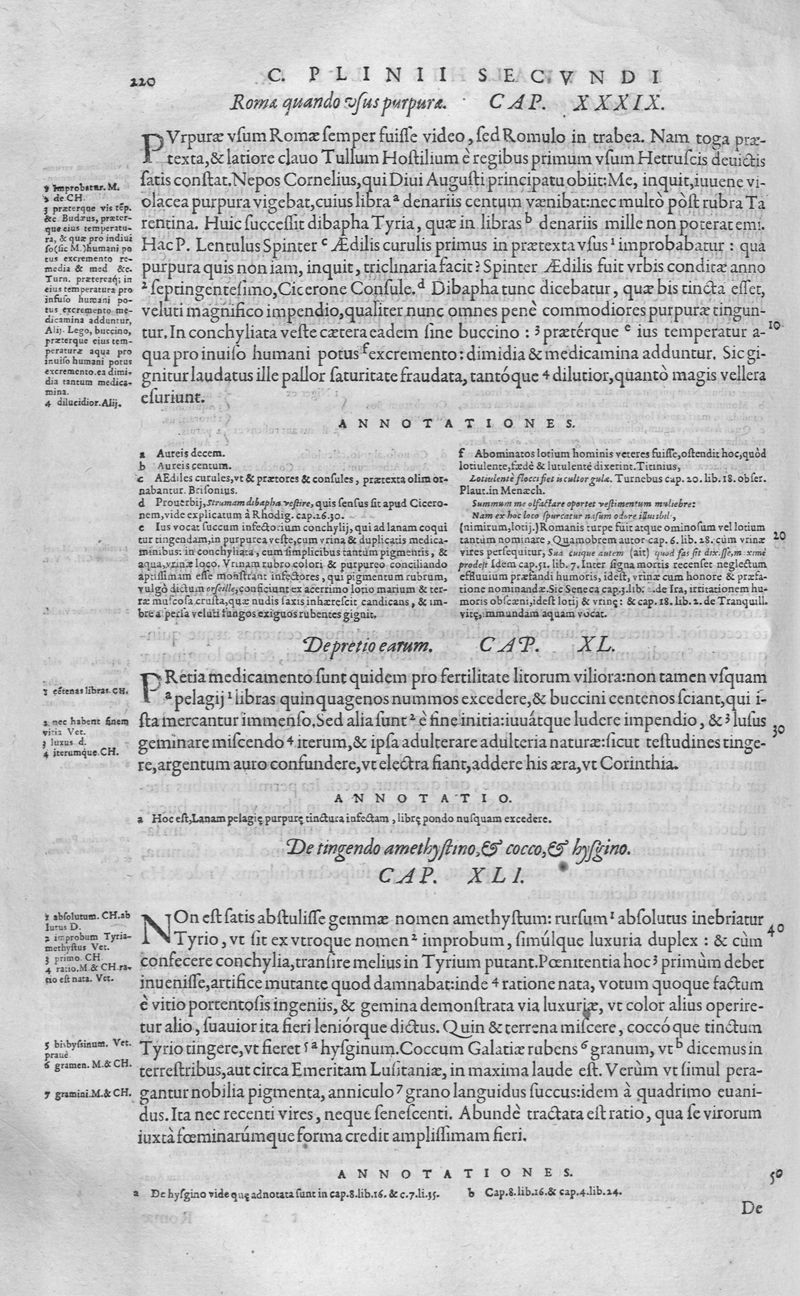 220
C. PLINII SECVNDI
Romæ quando vſus purpuræ. CAP. XXXIX.
PVrpuræ vſum Romæ ſemper fuiſſe video, ſed Romulo in trabea. Nam toga præ-
texta,& latiore clauo Tullum Hoſtilium è regibus primum vſum Hetruſcis deuictis
ſatis conſtat. Nepos Cornelius, qui Diui Auguſti principatu obiit: Me, inquit, iuuene vi-
olacea purpura vigebat, cuius libra a denariis centum vænibat: nec multò pòſt rubra Ta
rentina. Huic ſucceſſit dibapha Tyria, quæ in libras b denariis mille non poterat emi.
Hac P. Lentulus Spinter c Ædilis curulis primus in prætexta vſus 1 improbabatur : qua
purpura quis non iam, inquit, tricliniaria facit? Spinter Ædilis fuit vrbis conditæ anno
2 ſeptingenteſimo, Cicerone Conſule. d Dibapha tunc dicebatur, quæ bis tincta eſſet,
veluti magnifico impendio, qualiter nunc omnes penè commodiores purpuræ tingun-
tur. In conchyliata veſte cætera eadem ſine buccino : 3 prætérque e ius temperatur a-
qua pro inuiſo humani potus f excremento: dimidia & medicamina adduntur. Sic gi-
gnitur laudatus ille pallor ſaturitate fraudata, tantóque 4 dilutior, quantò magis vellera
eſuriunt.
1 Improbatur. M.
2 de CH.
3 præterque vis tẽp.
&c. Budæus, præter-
que eius temperatu-
ra, & quæ pro indiui
ſo (ſic M.) humani po
tus excremento re-
media & med &c.
Turn. prætereaq; in
eius temperatura pro
infuſo humani po-
tus excremento me-
dicamina adduntur,
Alij. Lego, buccino,
præterque eius tem-
peraturæ aqua pro
inuiſo humani potus
excremento. ea dimi-
dia tantum medica-
mina.
4 dilucidior. Alij.
10
ANNOTATIONES.
a Aureis decem.
b Aureis centum.
c AEdiles curules, vt & prætores & conſules, prætexta olim or-
nabantur. Briſonius.
d Prouerbij, Strumam dibapha veſtire, quis ſenſus ſit apud Cicero-
nem, vide explicatum à Rhodig. cap. 26.30.
e Ius vocat ſuccum infectorium conchylij, qui ad lanam coqui
tur tingendam, in purpurea veſte, cum vrina & duplicatis medica-
minibus: in conchyliata, cum ſimplicibus tantùm pigmentis, &
aqua, vrinæ loco. Vrinam rubro colori & purpureo conciliando
aptiſſimam eſſe monſtrant infectores, qui pigmentum rubrum,
vulgò dictum orſeille, conficiunt ex acerrimo lotio marium & ter-
ræ muſcoſa cruſta, quæ nudis ſaxis inhæreſcit candicans, & im-
bre aperſa veluti fungos exiguos rubentes gignit.
f Abominatos lotium hominis veteres fuiſſe, oſtendit hoc, quòd
lotiulente, fœdè & lutulentè dixerint. Titinius,
Lotiulentè flocci fiet is cultor gulæ. Turnebus cap. 20. lib. 18. obſer.
Plaut. in Menæch.
Summum me olfactare oportet veſtimentum muliebre:
Nam ex hoc loco ſpurcatur naſum odore illutibil,
(nimirum, lotij.) Romanis turpe fuit atque ominoſum vel lotium
tantùm nominare, Quamobrem autor cap. 6. lib. 28. cùm vrinæ
vires perſequitur, Sua cuique autem (ait) quod fas ſit dixiſſe, maximè
prodeſt Idem cap. 51. lib. 7. Inter ſigna mortis recenſet neglectum
effluuium præfandi humoris, ideſt, vrinæ cum honore & præfa-
tione nominandæ. Sic Seneca cap. 3. lib. de Ira, irritationem hu-
moris obſcæni, ideſt lotij & vrinę: & cap. 18. lib. 2. de Tranquill.
vitę, immundam aquam vocat.
20
De pretio earum. CAP. XL.
PRetia medicamento ſunt quidem pro fertilitate litorum viliora: non tamen vſquam
a pelagij 1 libras quinquagenos nummos excedere, & buccini centenos ſciant, qui i-
ſta mercantur immenſo. Sed alia ſunt 2 è fine initia: iuuátque ludere impendio, & 3 luſus
geminare miſcendo 4 iterum, & ipſa adulterare adulteria naturæ: ſicut teſtudines tinge-
re, argentum auro confundere, vt electra fiant, addere his æra, vt Corinthia.
1 cẽtenas libras. CH.
2 nec habent finem
vitia Vet.
3 luxus d.
4 iterumque. CH.
30
ANNOTATIO.
a Hoc eſt, Lanam pelagię purpurę tinctura infectam, librę pondo nuſquam excedere.
De tingendo amethyſtino, & cocco, & hyſgino.
CAP. XLI.
NOn eſt ſatis abſtuliſſe gemmæ nomen amethyſtum: rurſum 1 abſolutus inebriatur
Tyrio, vt ſit ex vtroque nomen 2 improbum, ſimúlque luxuria duplex : & cùm
confecere conchylia, tranſire melius in Tyrium putant. Pœnitentia hoc 3 primùm debet
inueniſſe, artifice mutante quod damnabat: inde 4 ratione nata, votum quoque factum
è vitio portentoſis ingeniis, & gemina demonſtrata via luxuriæ, vt color alius operire-
tur alio, ſuauior ita fieri leniórque dictus. Quin & terrena miſcere, coccóque tinctum
Tyrio tingere, vt fieret 5 a hyſginum. Coccum Galatiæ rubens 6 granum, vt b dicemus in
terreſtribus, aut circa Emeritam Luſitaniæ, in maxima laude eſt. Verùm vt ſimul pera-
gantur nobilia pigmenta, anniculo 7 grano languidus ſuccus: idem à quadrimo euani-
dus. Ita nec recenti vires, neque ſeneſcenti. Abundè tractata eſt ratio, qua ſe virorum
iuxtà fœminarúmque forma credit ampliſſimam fieri.
1 abſolutum. CH. ab
lutus D.
2 improbum Tyria-
methyſtus Vet.
3 primo. CH
4 ratio. M. & CH. ra-
tio eſt nata. Vet.
5 bisbyſsinum. Vet.
prauè
6 gramen. M. & CH.
7 gramini. M. & CH.
40
ANNOTATIONES.
50
a De hyſgino vide quę adnotata ſunt in cap. 8. lib. 16. & c. 7. li. 35. b Cap. 8. lib. 16. & cap. 4. lib. 24.
De